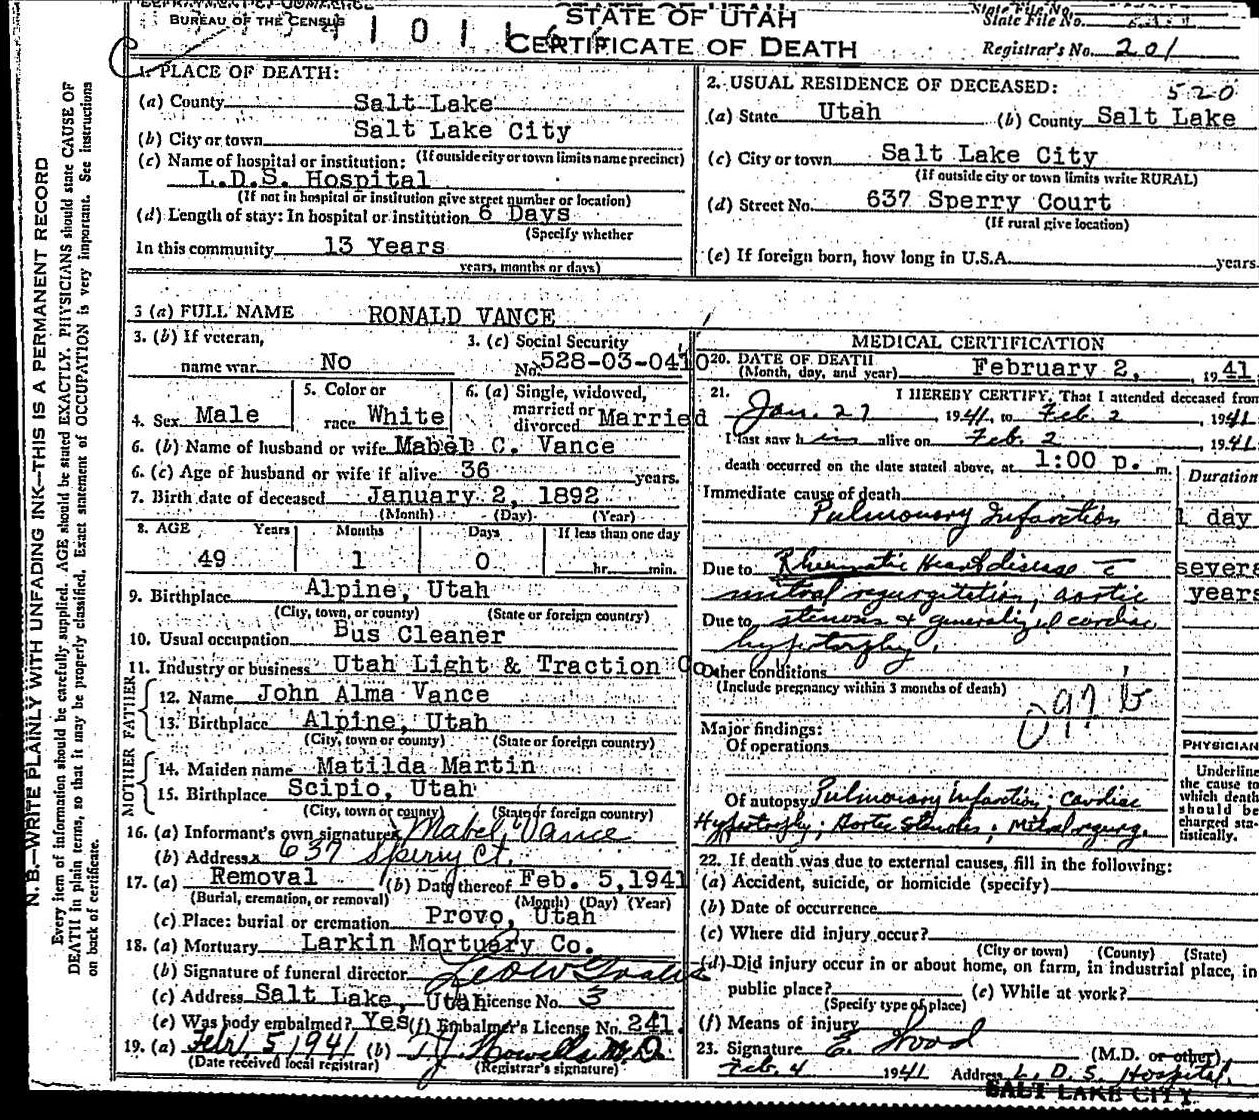 BUREAU OF THE CENSUS
STATE OF UTAH
CERTIFICATE OF DEATH
State File No.
State File No.
Registrar's No. 201
N. B.—WRITE PLAINLY WITH UNFADING INK—THIS IS A PERMANENT RECORD
Every item of information should be carefully supplied. AGE should be stated EXACTLY. PHYSICIANS should state CAUSE OF
DEATH in plain terms, so that it may be properly classified. Exact statement of OCCUPATION is very important. See instructions
on back of certificate.
1. PLACE OF DEATH:
(a) County Salt Lake
(b) City or town Salt Lake City
(c) Name of hospital or institution: (If outside city or town limits name precinct)
L.D.S. Hospital
(If not in hospital or institution give street number or location)
(d) Length of stay: In hospital or institution 6 Days
(Specify whether
In this community 13 Years
years, months or days)
2. USUAL RESIDENCE OF DECEASED: 520
(a) State Utah (b) County Salt Lake
(c) City or town Salt Lake City
(If outside city or town limits write RURAL)
(d) Street No. 637 Sperry Court
(If rural give location)
(e) If foreign born, how long in U.S.A. years.
3 (a) FULL NAME RONALD VANCE
3. (b) If veteran, 3. (c) Social Security
name war No No. 528-03-0410
4. Sex Male
5. Color or
race White
6. (a) Single, widowed,
married or
divorced Married
6. (b) Name of husband or wife Mabel C. Vance
6. (c) Age of husband or wife if alive 36 years.
7. Birth date of deceased January 2, 1892
(Month) (Day) (Year)
8. AGE Years Months Days If less than one day
49 1 0 hr. min.
9. Birthplace Alpine, Utah
(City, town, or county) (State or foreign country)
10. Usual occupation Bus Cleaner
11. Industry or business Utah Light & Traction Co
FATHER
12. Name John Alma Vance
13. Birthplace Alpine, Utah
(City, town or county) (State or foreign country)
MOTHER
14. Maiden name Matilda Martin
15. Birthplace Scipio, Utah
(City, town or county) (State or foreign country)
16. (a) Informant's own signature x Mabel Vance
(b) Address x 637 Sperry Ct.
17. (a) Removal (b) Date thereof Feb. 5, 1941
(Burial, cremation, or removal) (Month) (Day) (Year)
(c) Place: burial or cremation Provo, Utah
18. (a) Mortuary Larkin Mortuary Co.
(b) Signature of funeral director
(c) Address Salt Lake, Utah License No. 3
(e) Was body embalmed? Yes (f) Embalmer's License No. 241.
19. (a) Feb. 5 1941 (b) T.J. Howells M.D.
(Date received local registrar) (Registrar's signature)
MEDICAL CERTIFICATION
20. DATE OF DEATH
(Month, day, and year) February 2, 1941
21. I HEREBY CERTIFY, That I attended deceased from
Jan. 27 1941, to Feb. 2 1941
I last saw him alive on Feb. 2 1941
death occurred on the date stated above, at 1:00 p. m.
Duration
Immediate cause of death
Pulmonary Infarction 1 day
Due to Rheumatic Heart disease c̄ severa
mitral regurgitation, aortic years
Due to stenosis & generalized cardiac
hypertrophy.
Other conditions
(Include pregnancy within 3 months of death)
Major findings:
Of operations
PHYSICIAN
Underline
the cause to
which death
should be
charged sta-
tistically.
Of autopsy Pulmonary Infarction; Cardiac
Hypertrophy; Aortic Stenosis; Mitral regurg.
22. If death was due to external causes, fill in the following:
(a) Accident, suicide, or homicide (specify)
(b) Date of occurrence
(c) Where did injury occur?
(City or town) (County) (State)
(d) Did injury occur in or about home, on farm, in industrial place, in
public place? (e) While at work?
(Specify type of place)
(f) Means of injury
23. Signature E. Wood (M.D. or other)
Feb. 4 1941 Address L. D. S. Hospital.
SALT LAKE CITY.